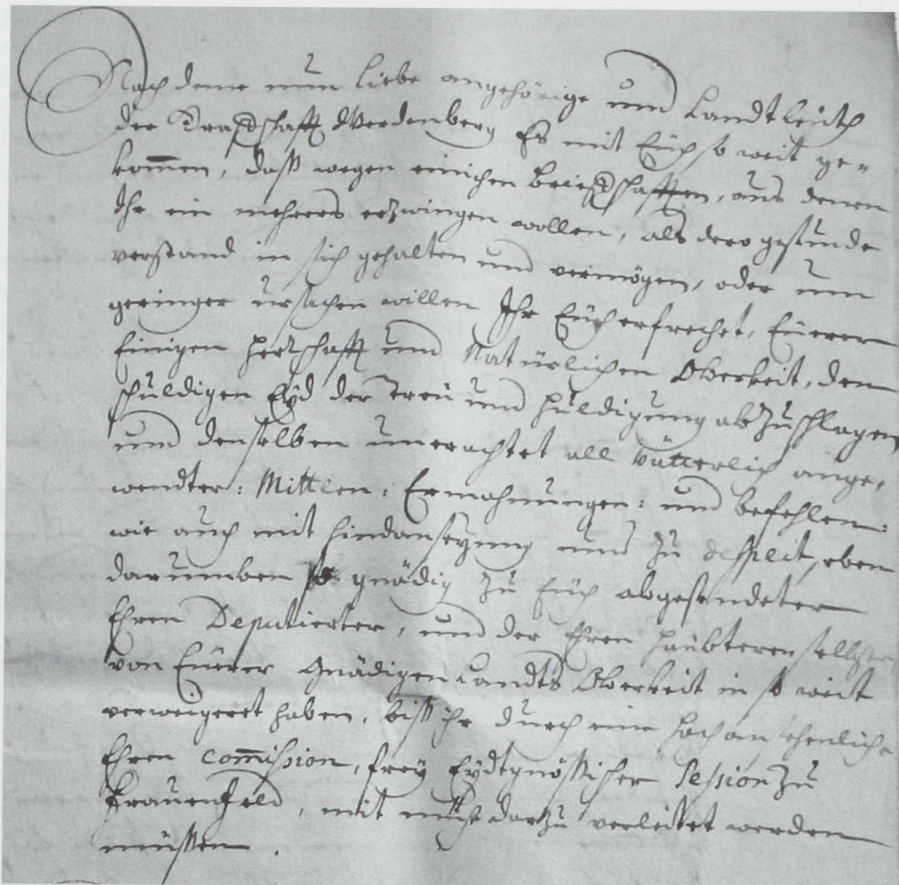 Nach deme nun liebe angehörige und Landtleüth
der Graffschafft Werdenberg Es mit Eüch so weit ge-
kommen, daß wegen einichen brieffschafften, aus denen
Ihr ein mehrers erzwingen wollen, als dero gesunde
verstand in sich gehalten und vermögen, oder um
geringer ursachen willen Ihr Eüch erfrechet, Eüerer
Einigen Herrschafft und Natürlichen Oberkeit, den
schuldigen Eyd der Treü und Huldigung abzuschlagen
und denselben unerachtet all vätterlich ange-
wendter: Mittlen: Ermahnungen: und befehlen:
wie auch mit hindansezung und zu despeit, eben
darumben so gnädig zu Eüch abgesendeter
Ehren Deputierter, und der Ehren Haübteren selbsten
von Eüerer Gnädigen Landts Oberkeit in so weit
verweigeret haben, biß ihr durch eine hochansehenliche
Ehren Commission, frey Eydtgnößischer Session zu
Frauenfeld, mit mühe darzu verleitet werden
müssen.